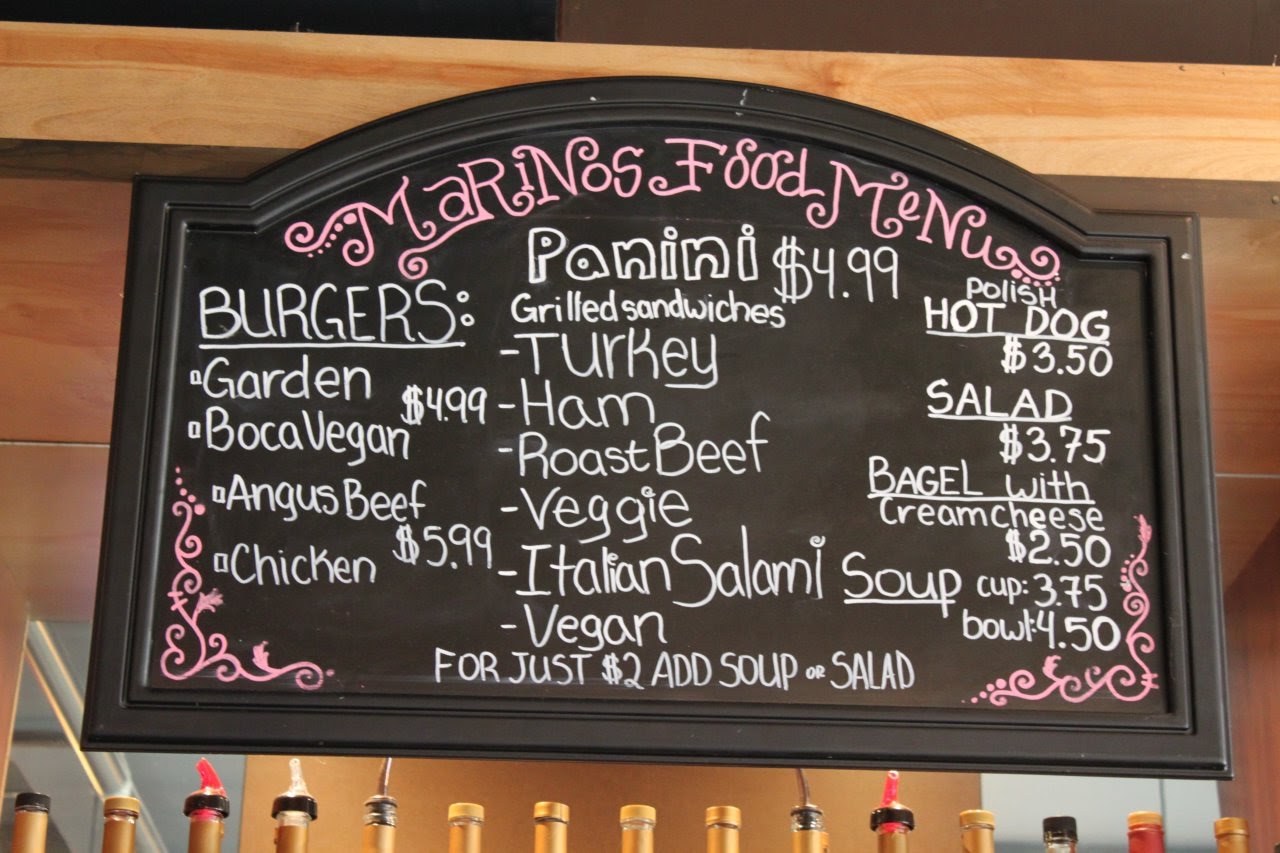 Marinos Food Menu
BURGERS:
Garden
$4.99
Boca Vegan
Angus Beef
$5.99
Chicken
Panini $4.99
Grilled sandwiches
-Turkey
-Ham
-Roast Beef
-Veggie
-Italian Salami
-Vegan
Polish
HOT DOG
$3.50
SALAD
$3.75
BAGEL with
Cream cheese
$2.50
Soup cup: 3.75
bowl: 4.50
FOR JUST $2 ADD SOUP OR SALAD